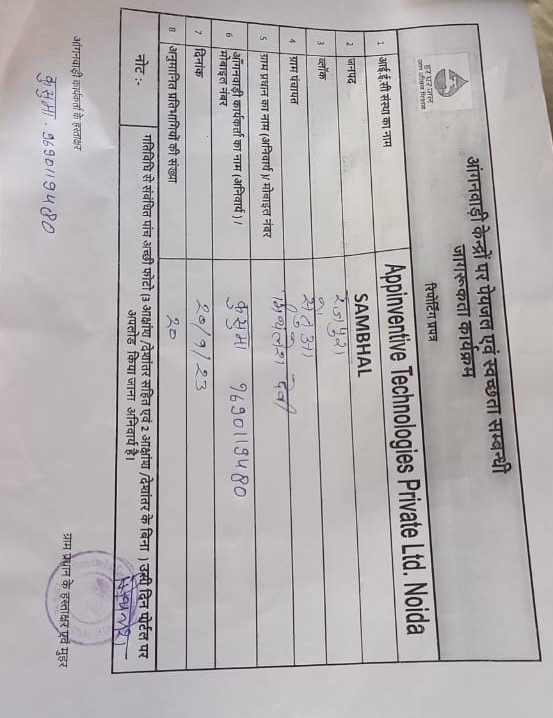 हर घर जल
जल जीवन मिशन
आंगनवाड़ी केन्द्रों पर पेयजल एवं स्वच्छता सम्बन्धी
जागरूकता कार्यक्रम
रिपोर्टिंग प्रपत्र
1 आई.ई.सी संस्था का नाम Appinventive Technologies Private Ltd. Noida
2 जनपद SAMBHAL
3 ब्लॉक रजपुरा
4 ग्राम पंचायत
5 ग्राम प्रधान का नाम (अनिवार्य)/ मोबाइल नंबर देवी
6 आँगनवाड़ी कार्यकर्ता का नाम (अनिवार्य)। मोबाइल नंबर कुसुमा 9690119480
7 दिनांक 20/9/23
8 अनुमानित प्रतिभागियों की संख्या 20
नोट :- गतिविधि से संबंधित पांच अच्छी फोटो (3 आक्षांश /देशांतर सहित एवं 2 आक्षांश /देशांतर के बिना ) उसी दिन पोर्टल पर
अपलोड किया जाना अनिवार्य है।
आंगनवाड़ी कार्यकर्ता के हस्ताक्षर
कुसुमा - 9690119480
ग्राम प्रधान के हस्ताक्षर एवं मुहर